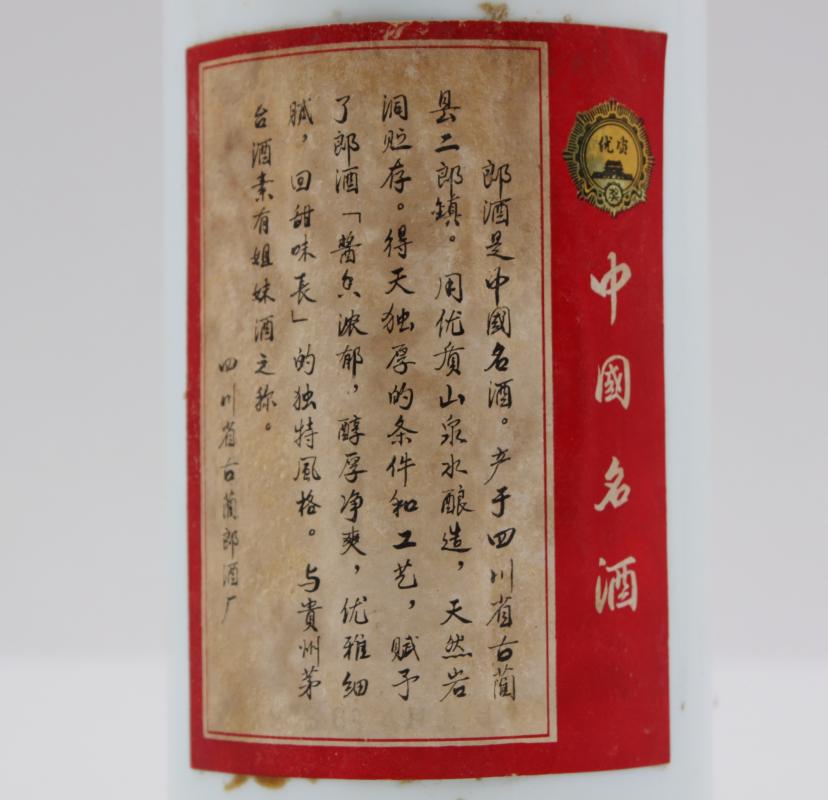 优质
奖
中國名酒
郎酒是中國名酒。产于四川省古蔺
县二郎鎮。用优质山泉水酿造，天然岩
洞贮存。得天独厚的条件和工艺，赋予
了郎酒「醬香浓郁，醇厚净爽，优雅细
腻，回甜味長」的独特風格。与貴州茅
台酒素有姐妹酒之称。
四川省古蔺郎酒厂